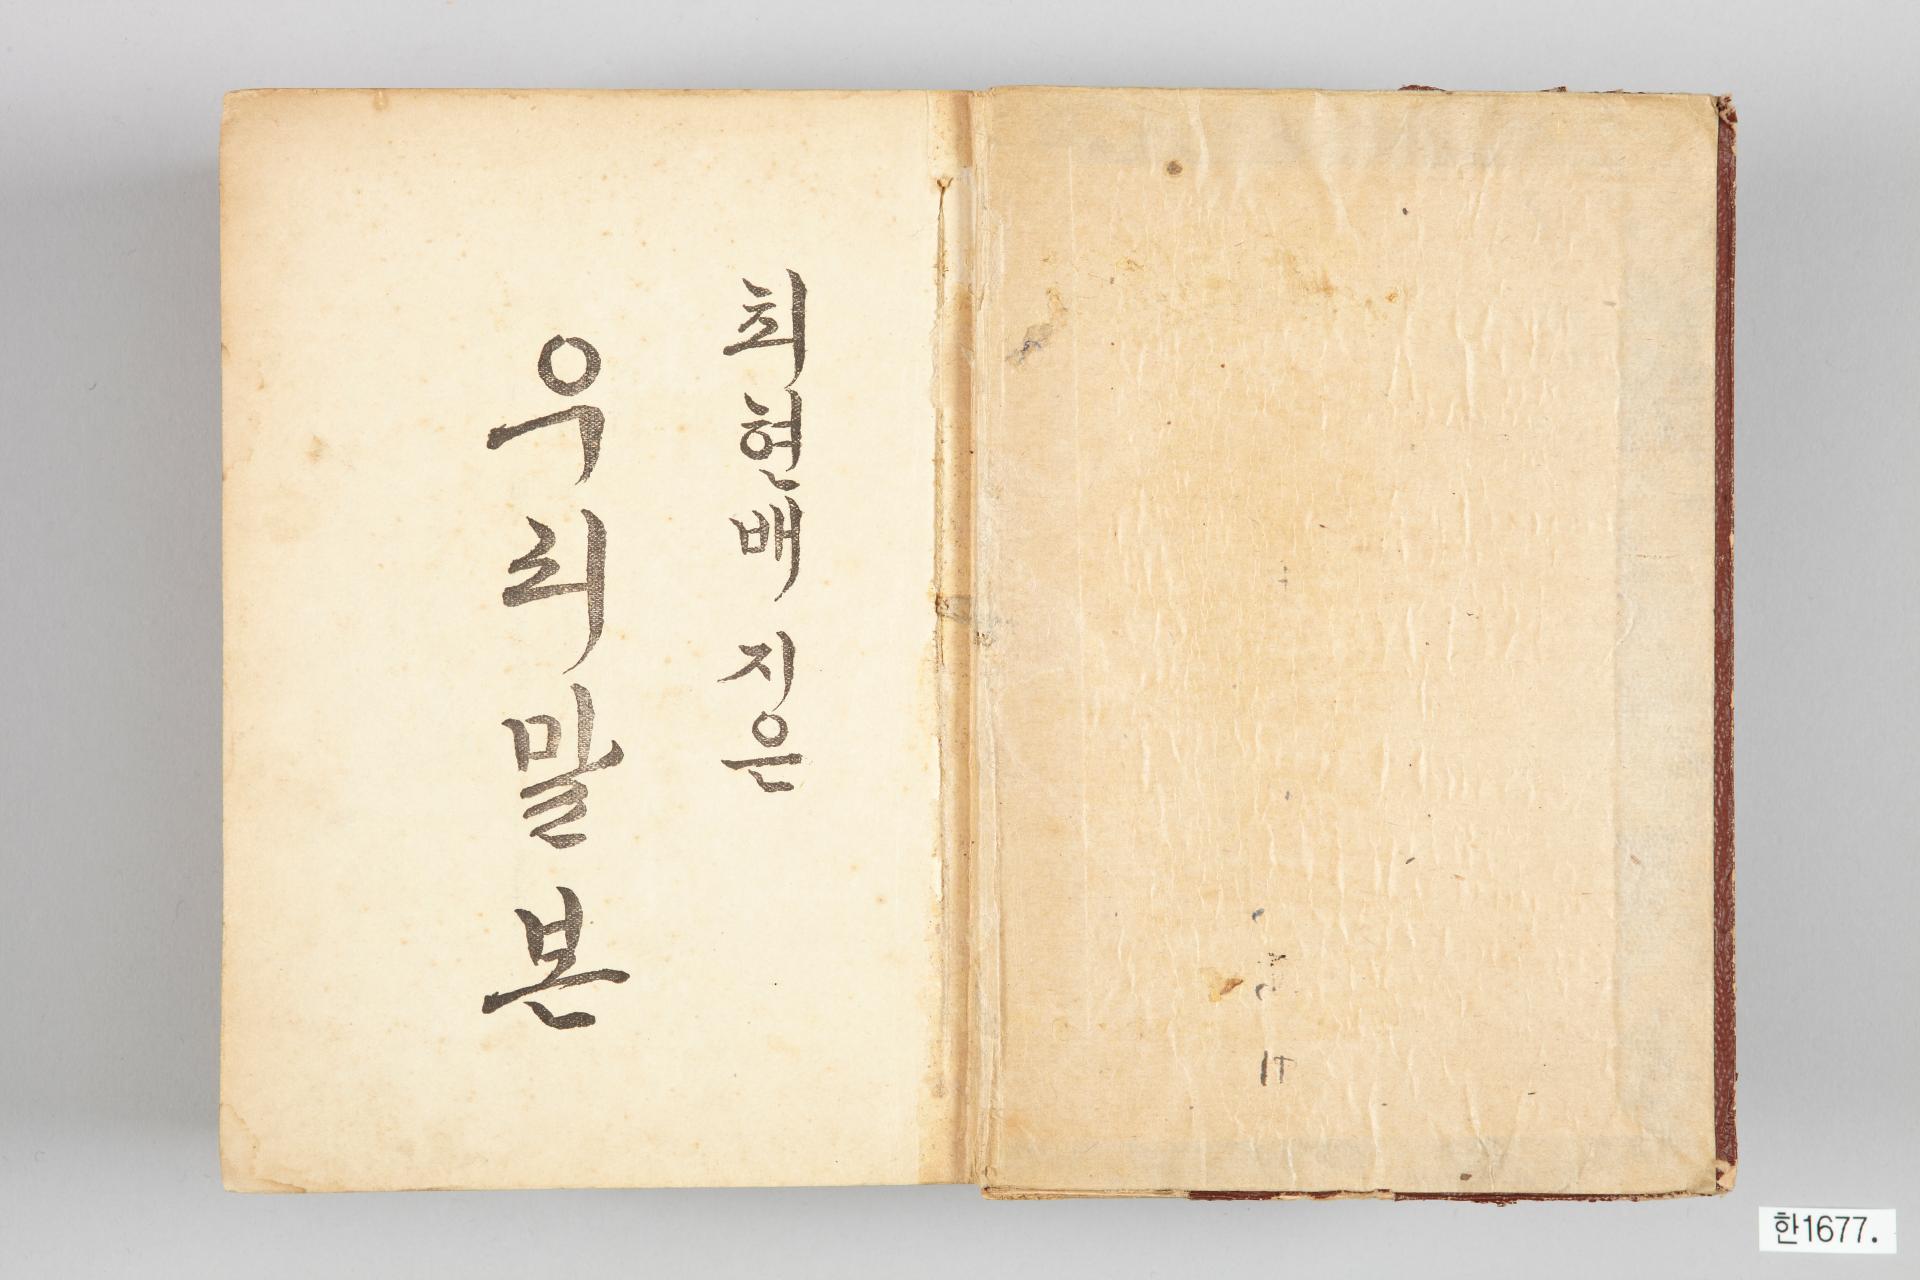 최현배 지은
우리말본
한1677.